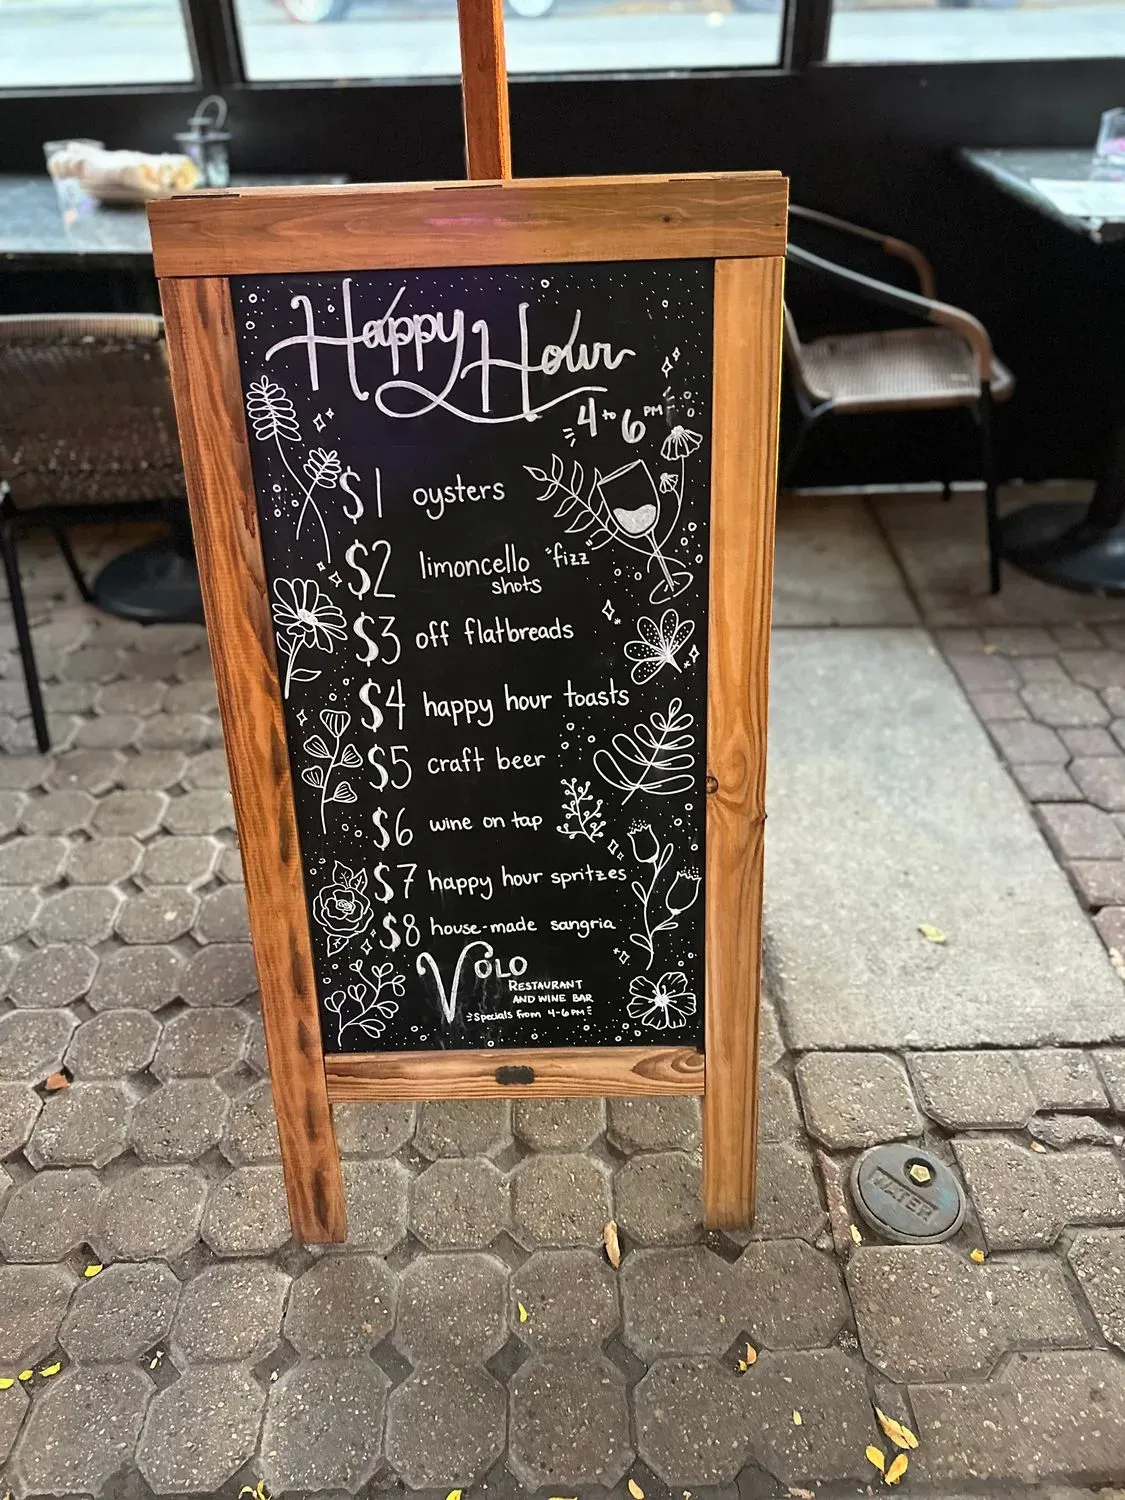 Happy Hour
4 to 6 PM
$1 oysters
$2 limoncello "fizz"
shots
$3 off flatbreads
$4 happy hour toasts
$5 craft beer
$6 wine on tap
$7 happy hour spritzes
$8 house-made sangria
VOLO
RESTAURANT
AND WINE BAR
Specials from 4-6PM
WATER